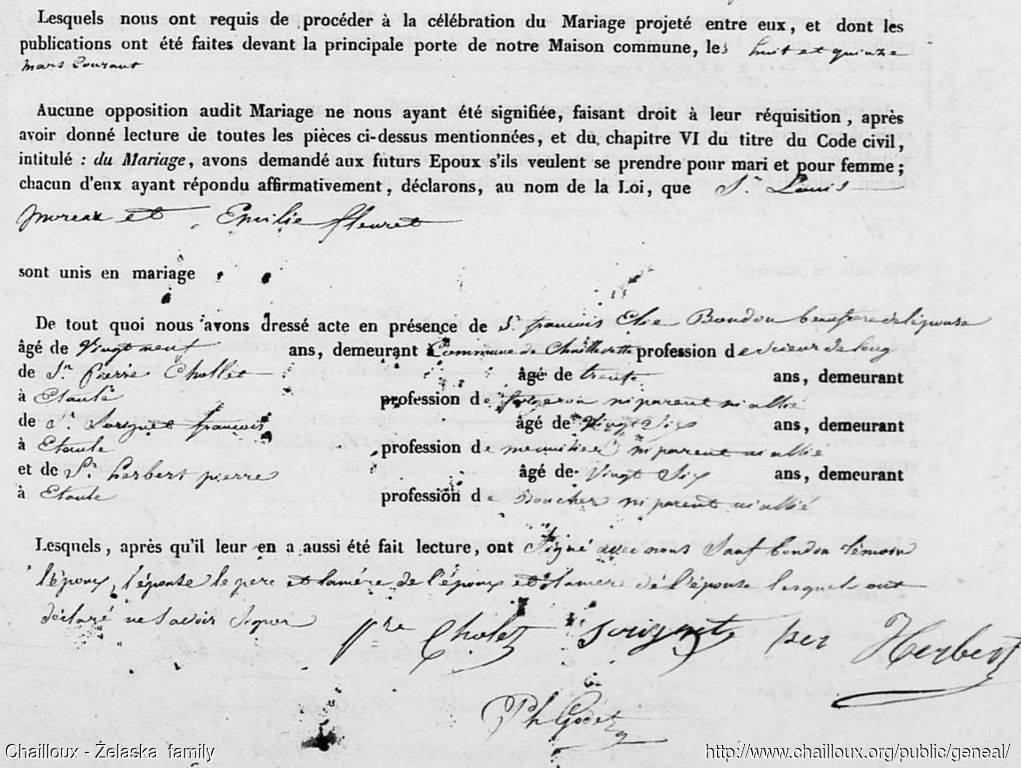 Lesquels nous ont requis de procéder à la célébration du Mariage projeté entre eux, et dont les
publications ont été faites devant la principale porte de notre Maison commune, les huit et quinze
mars Courant
Aucune opposition audit Mariage ne nous ayant été signifiée, faisant droit à leur réquisition, après
avoir donné lecture de toutes les pièces ci-dessus mentionnées, et du chapitre VI du titre du Code civil,
intitulé : du Mariage, avons demandé aux futurs Epoux s'ils veulent se prendre pour mari et pour femme ;
chacun d'eux ayant répondu affirmativement, déclarons, au nom de la Loi, que Sr. Louis
et Emilie fleuret
sont unis en mariage
De tout quoi nous avons dressé acte en présence de Sr. françois Elie Boudou beaupère de l'épouse
âgé de Vingt neuf ans, demeurant Commune de Chaillevette profession de Scieur de long
de Sr. Pierre Chollet âgé de trente ans, demeurant
à Etaule profession de ni parent ni allié
de Sr. françois âgé de Vingt Six ans, demeurant
à Etaule profession de ni parent ni allié
et de Sr. herbert pierre âgé de Vingt Six ans, demeurant
à Etaule profession de Boucher ni parent ni allié
Lesquels, après qu'il leur en a aussi été fait lecture, ont Signé avec nous Sauf boudou témoin
l'époux, l'épouse le pere et la mére de l'époux et la mer de l'épouse lesquels ont
déclaré ne Savoir Signer
Pre Cholet per Herbert
Ph Godet
Chailloux - Želaska family
http://www.chailloux.org/public/geneal/